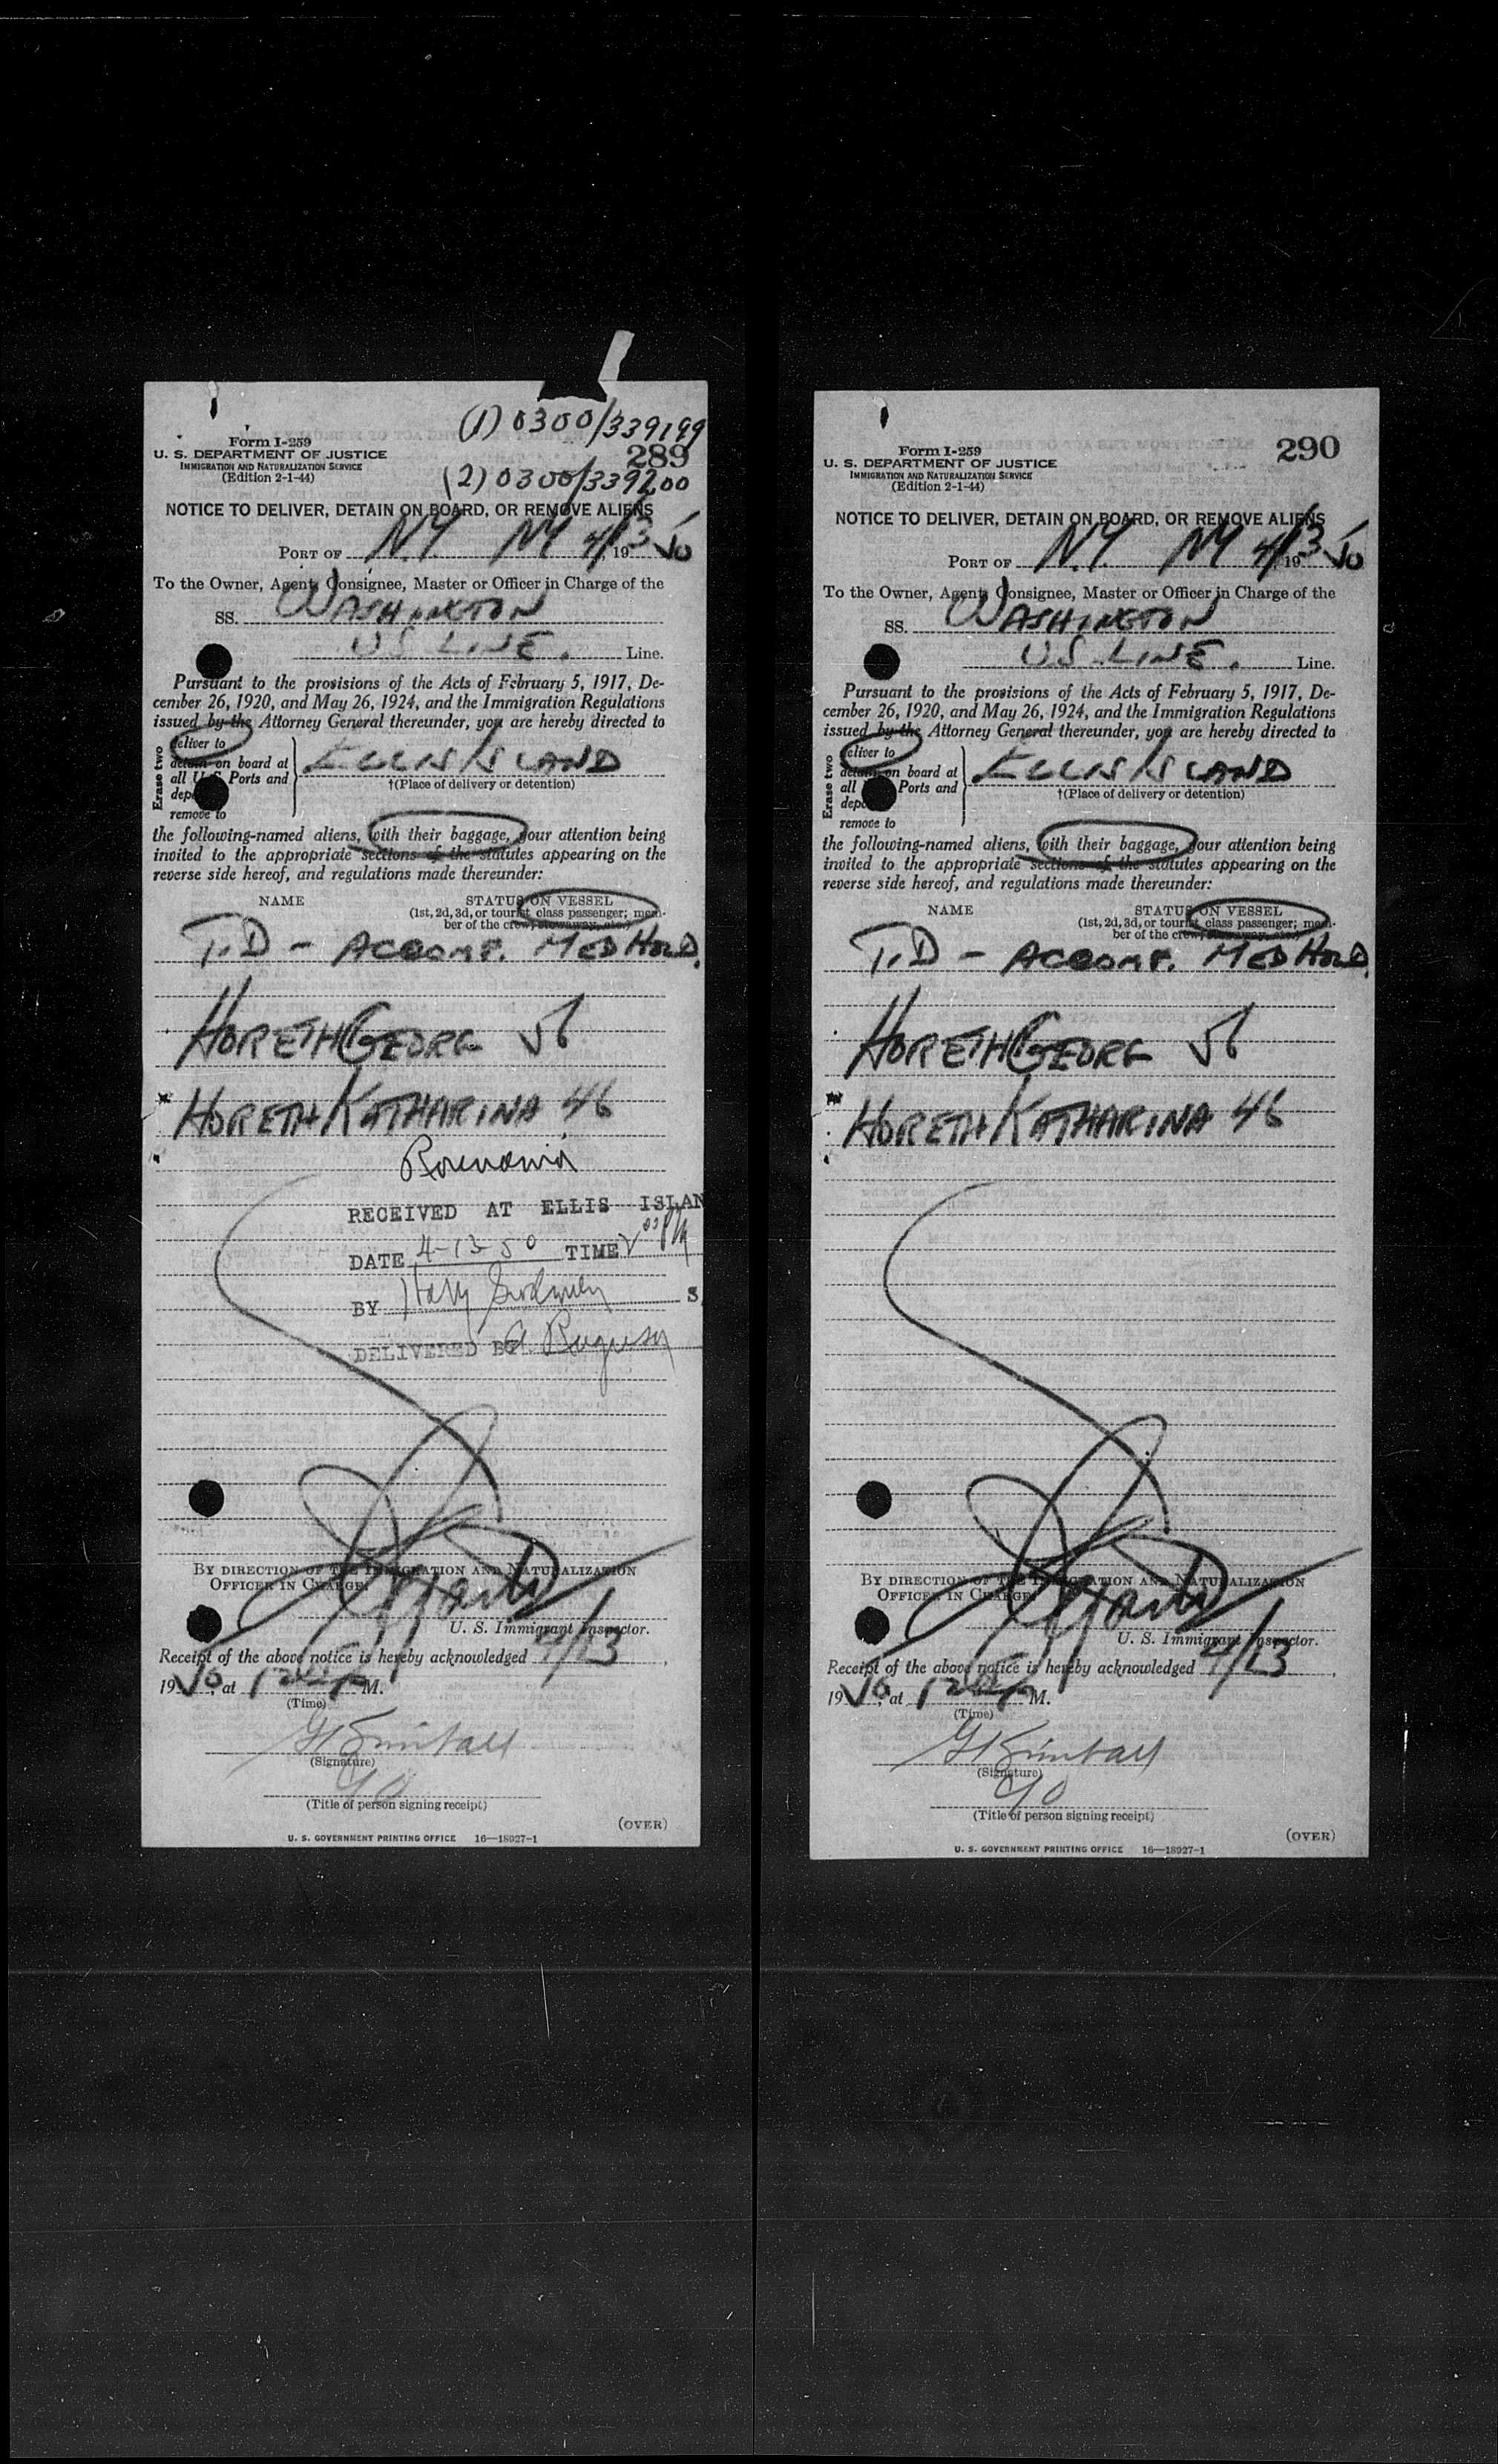 (1) 0300/339199
Form I-259
U. S. DEPARTMENT OF JUSTICE
289
IMMIGRATION AND NATURALIZATION SERVICE
(Edition 2-1-44)
(2) 0300/339200
NOTICE TO DELIVER, DETAIN ON BOARD, OR REMOVE ALIENS
PORT OF N.Y. NY 4/13, 1950
To the Owner, Agent, Consignee, Master or Officer in Charge of the
SS. WASHINGTON
US LINE. Line.
Pursuant to the provisions of the Acts of February 5, 1917, De-
cember 26, 1920, and May 26, 1924, and the Immigration Regulations
issued by the Attorney General thereunder, you are hereby directed to
Erase two
deliver to
detain on board at
all U. S. Ports and
remove to
ELLIS ISLAND
†(Place of delivery or detention)
the following-named aliens, with their baggage, your attention being
invited to the appropriate sections of the statutes appearing on the
reverse side hereof, and regulations made thereunder:
NAME STATUS ON VESSEL
(1st, 2d, 3d, or tourist class passenger; mem-
ber of the crew, stowaway, etc.)
T.D - ACCOMP. MED HOLD.
HORETH GEORG 56
HORETH KATHARINA 46
Roumania
RECEIVED AT ELLIS ISLAN
DATE 4-13-50 TIME
BY S
DELIVERED BY
BY DIRECTION OF THE IMMIGRATION AND NATURALIZATION
OFFICER IN CHARGE:
U. S. Immigrant Inspector.
Receipt of the above notice is hereby acknowledged 4/13,
1950, at M.
(Time)
G Kimball
(Signature)
(Title of person signing receipt)
(OVER)
U. S. GOVERNMENT PRINTING OFFICE 16—18927-1
Form I-259
290
U. S. DEPARTMENT OF JUSTICE
IMMIGRATION AND NATURALIZATION SERVICE
(Edition 2-1-44)
NOTICE TO DELIVER, DETAIN ON BOARD, OR REMOVE ALIENS
PORT OF N.Y. NY 4/13, 1950
To the Owner, Agent, Consignee, Master or Officer in Charge of the
SS. WASHINGTON
US LINE. Line.
Pursuant to the provisions of the Acts of February 5, 1917, De-
cember 26, 1920, and May 26, 1924, and the Immigration Regulations
issued by the Attorney General thereunder, you are hereby directed to
Erase two
deliver to
detain on board at
all Ports and
remove to
ELLIS ISLAND
†(Place of delivery or detention)
the following-named aliens, with their baggage, your attention being
invited to the appropriate sections of the statutes appearing on the
reverse side hereof, and regulations made thereunder:
NAME STATUS ON VESSEL
(1st, 2d, 3d, or tourist class passenger; mem-
ber of the crew, stowaway, etc.)
T.D - ACCOMP. MED HOLD.
HORETH GEORG 56
HORETH KATHARINA 46
BY DIRECTION OF THE IMMIGRATION AND NATURALIZATION
OFFICER IN CHARGE:
U. S. Immigrant Inspector.
Receipt of the above notice is hereby acknowledged 4/13,
1950, at M.
(Time)
G Kimball
(Signature)
(Title of person signing receipt)
(OVER)
U. S. GOVERNMENT PRINTING OFFICE 16—18927-1